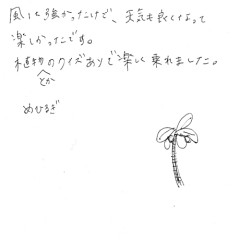 風は強かったけど、天気も良くなって
楽しかったです。
植物とかのクイズありで楽しく乗れました。
めひるぎ